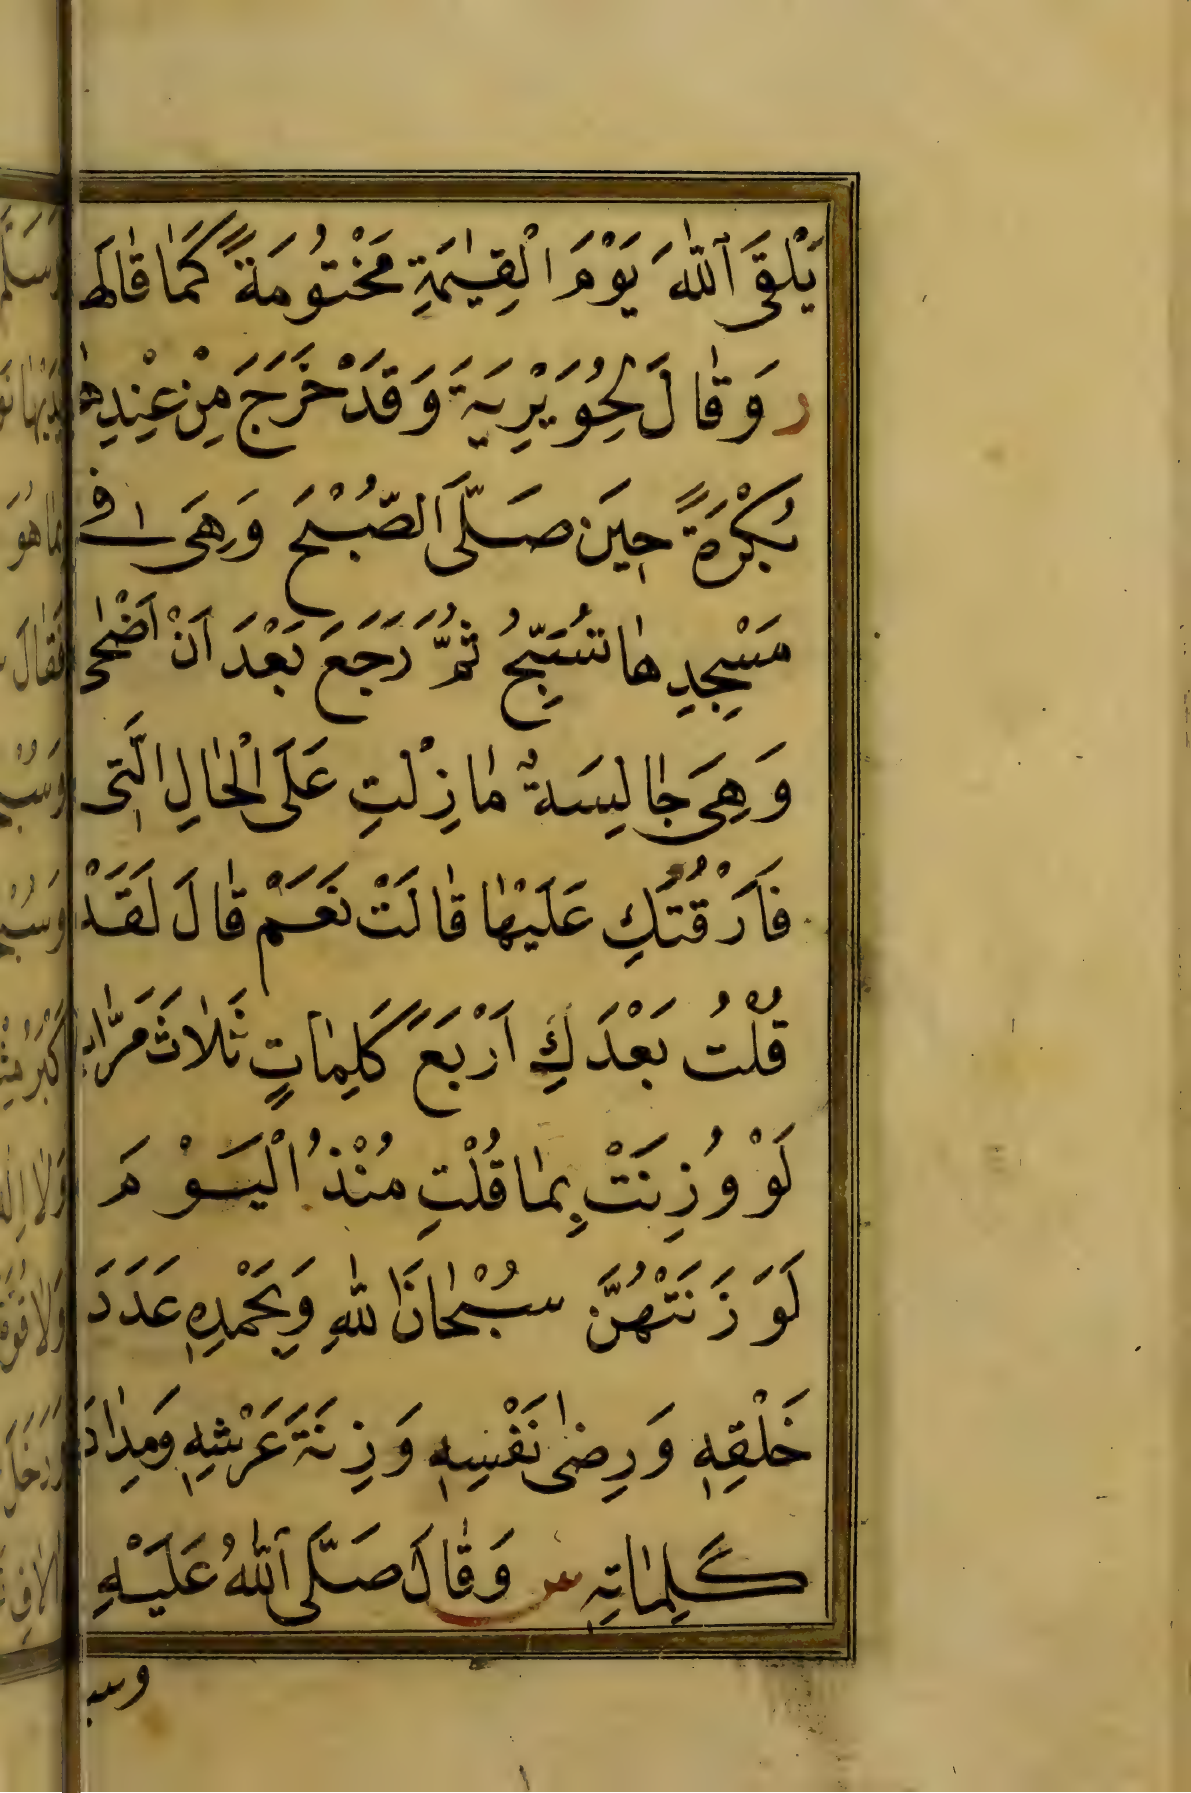 يَلْقَى ٱللّٰهَ يَوْمَ الْقِيٰمَةِ مَخْتُومَةً كَمٰا قٰالَهٰا
ر وَقٰالَ لِجُوَيْرِيَةَ وَقَدْ خَرَجَ مِنْ عِنْدِهٰا
بُكْرَةً حِينَ صَلَّى الصُّبْحَ وَهِىَ فى
مَسْجِدِهٰا تُسَبِّحُ ثُمَّ رَجَعَ بَعْدَ اَنْ اَضْحٰى
وَهِىَ جٰالِسَةٌ مٰا زِلْتِ عَلَى الْحٰالِ الَّتِى
فَارَقْتُكِ عَلَيْهٰا قٰالَتْ نَعَمْ قٰالَ لَقَدْ
قُلْتُ بَعْدَكِ اَرْبَعَ كَلِمٰاتٍ ثَلٰاثَ مَرّٰاتٍ
لَوْ وُزِنَتْ بِمٰا قُلْتِ مُنْذُ الْيَوْمَ
لَوَزَنَتْهُنَّ سُبْحٰانَ اللّٰهِ وَبِحَمْدِهِ عَدَدَ
خَلْقِهِ وَرِضٰى نَفْسِهِ وَزِنَةَ عَرْشِهِ وَمِدٰادَ
كَلِمٰاتِهِ س وَقٰالَ صَلَّى ٱللّٰهُ عَلَيْهِ
وسـ